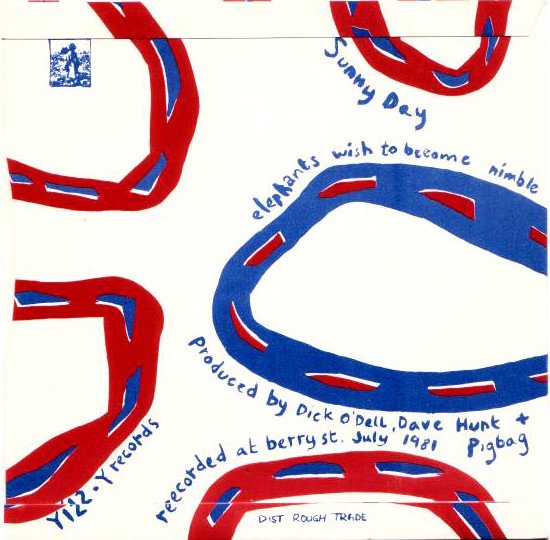 Sunny Day
elephants wish to become nimble
produced by Dick O'Dell, Dave Hunt +
Pigbag
reecorded at berry st. July 1981
Y122 • Y records
DIST ROUGH TRADE